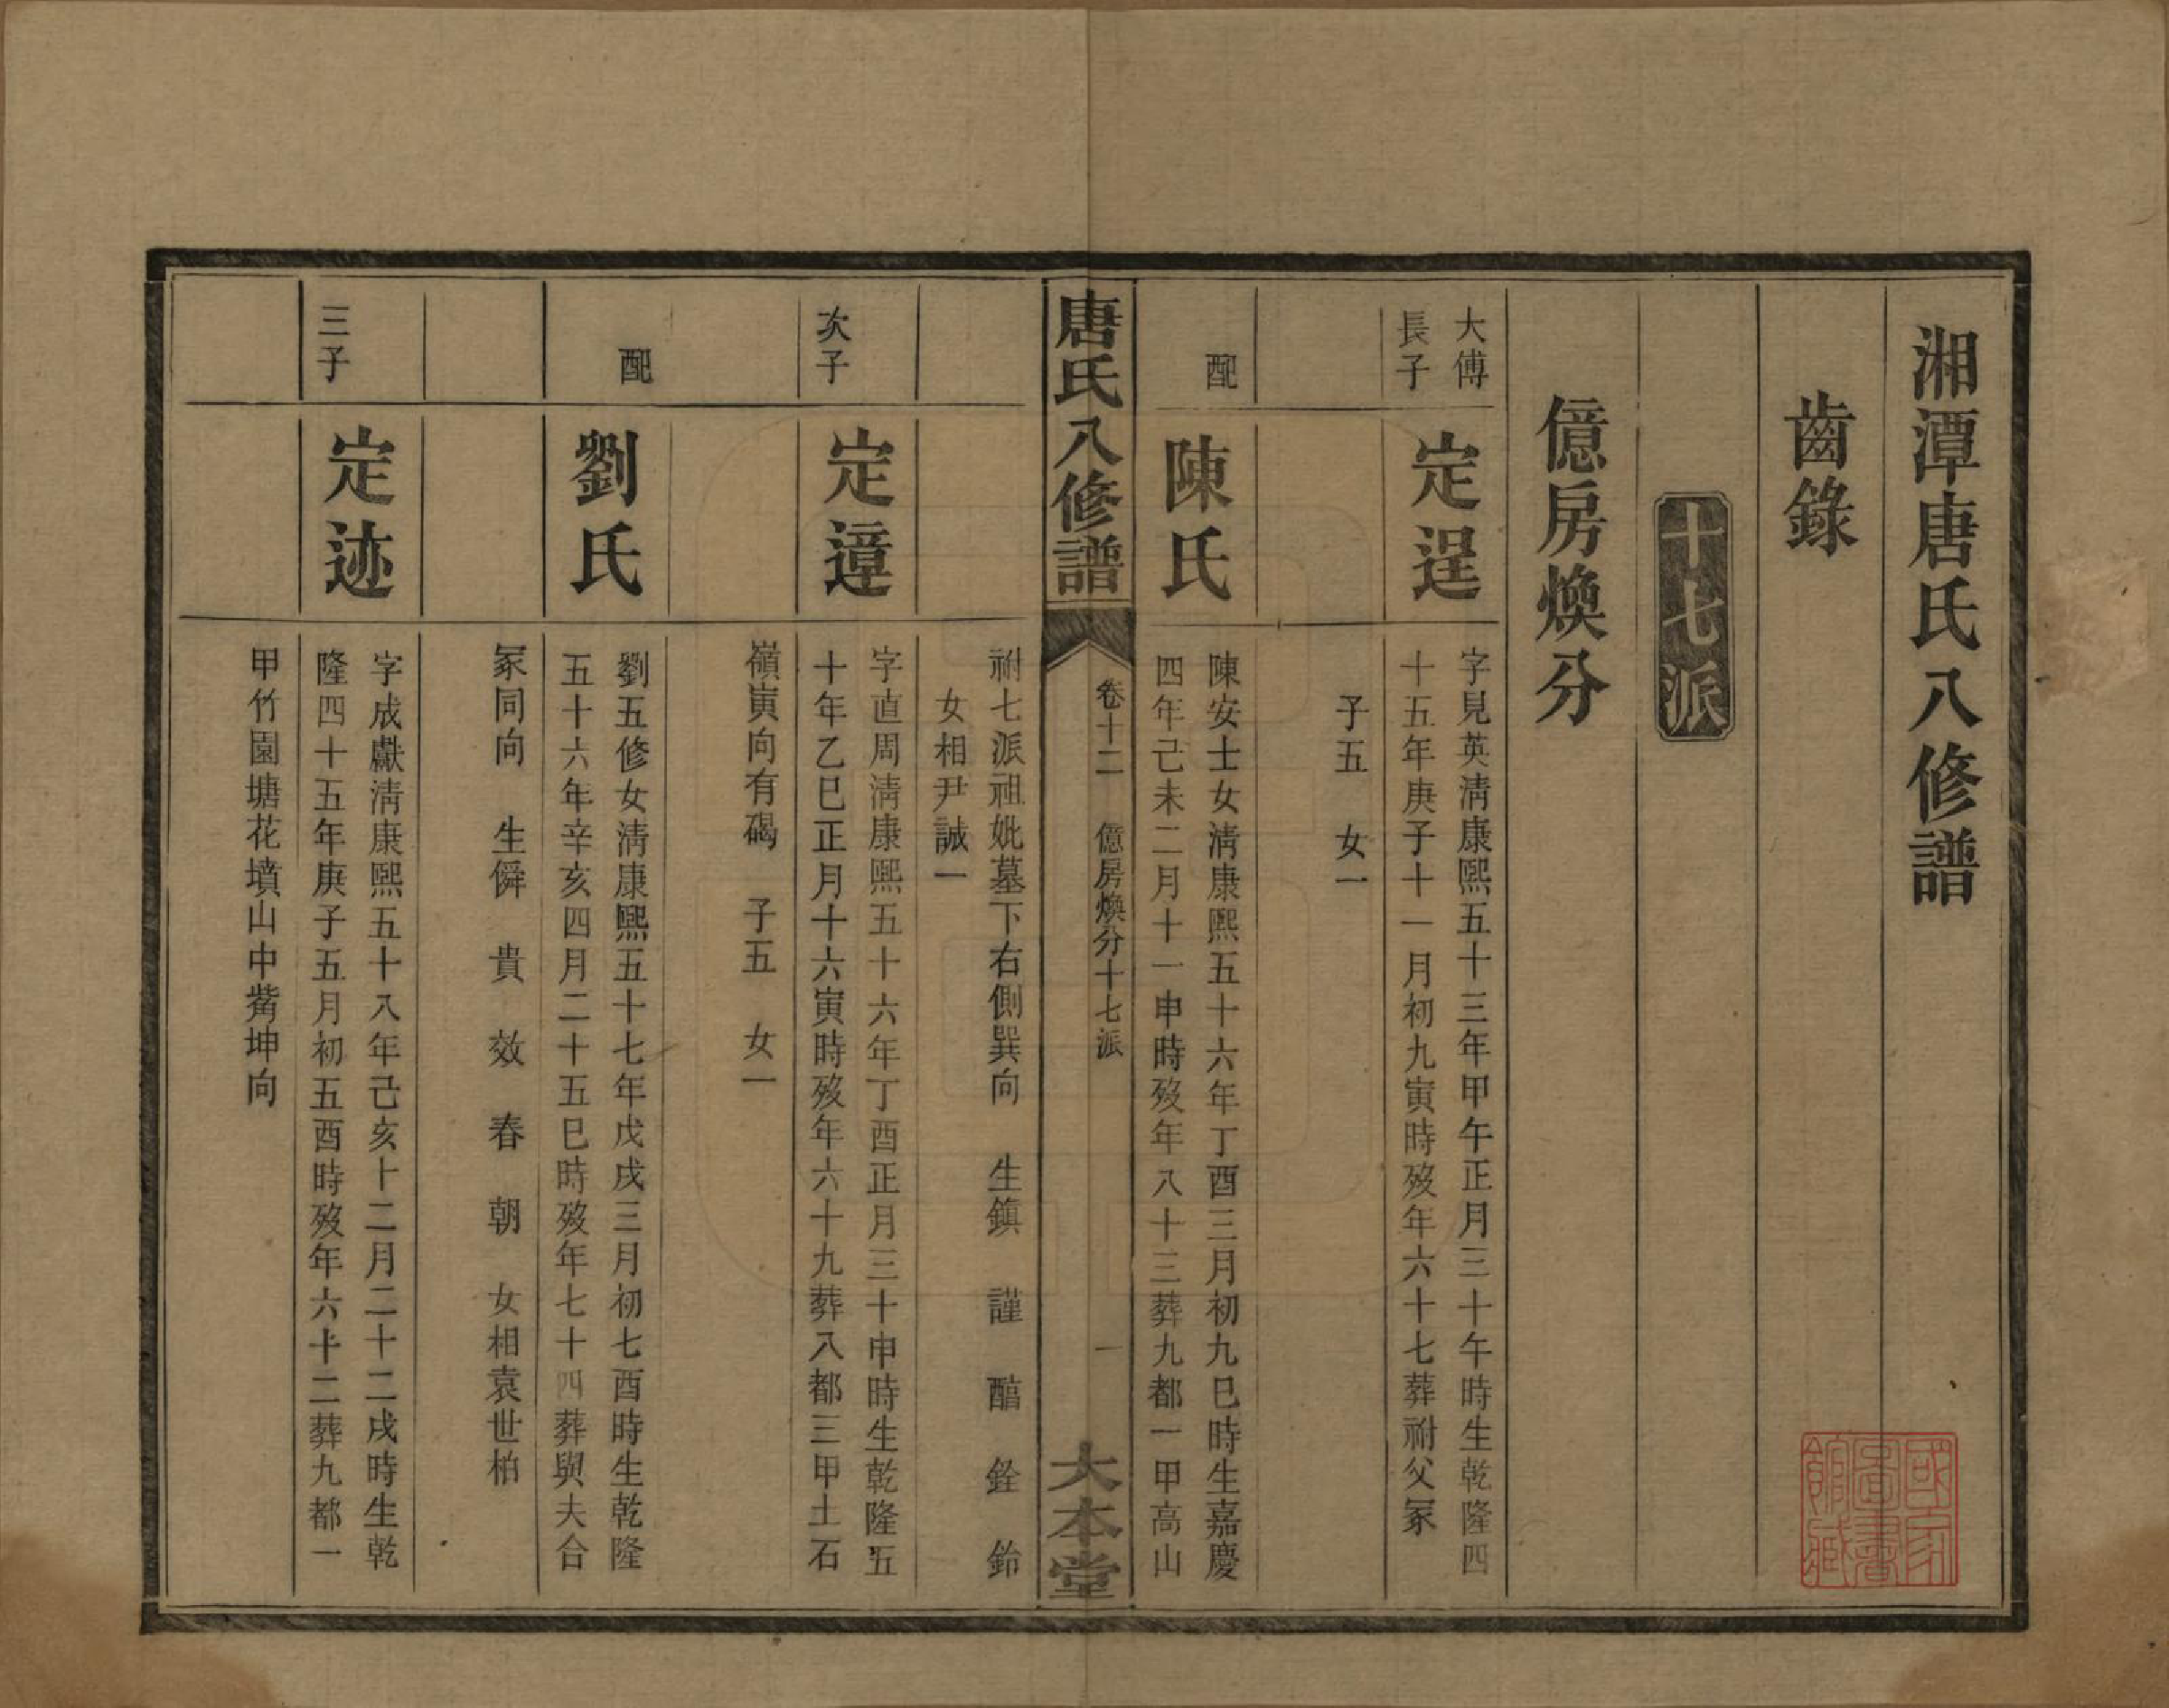 湘潭唐氏八修譜
齒錄
十七派
億房煥分
大傅
長子
定逞
字見英淸康熙五十三年甲午正月三十午時生乾隆四
十五年庚子十一月初九寅時歿年六十七葬祔父冢
子五　女一
配
陳氏
陳安士女淸康熙五十六年丁酉三月初九巳時生嘉慶
四年己未二月十一申時歿年八十三葬九都一甲高山
唐氏八修譜
卷十二　億房煥分十七派
一
大本堂
祔七派祖妣墓下右側巽向　生鎮　謹　醕　銓　鈰
女相尹誠一
次子
定遧
字直周淸康熙五十六年丁酉正月三十申時生乾隆五
十年乙巳正月十六寅時歿年六十九葬入都三甲土石
嶺寅向有碣　子五　女一
配
劉氏
劉五修女淸康熙五十七年戊戌三月初七酉時生乾隆
五十六年辛亥四月二十五巳時歿年七十四葬與夫合
冢同向　生僢　貴　效　春　朝　女相袁世柏
三子
定迹
字成獻淸康熙五十八年己亥十二月二十二戌時生乾
隆四十五年庚子五月初五酉時歿年六十二葬九都一
甲竹園塘花墳山中觜坤向
國家圖書館藏